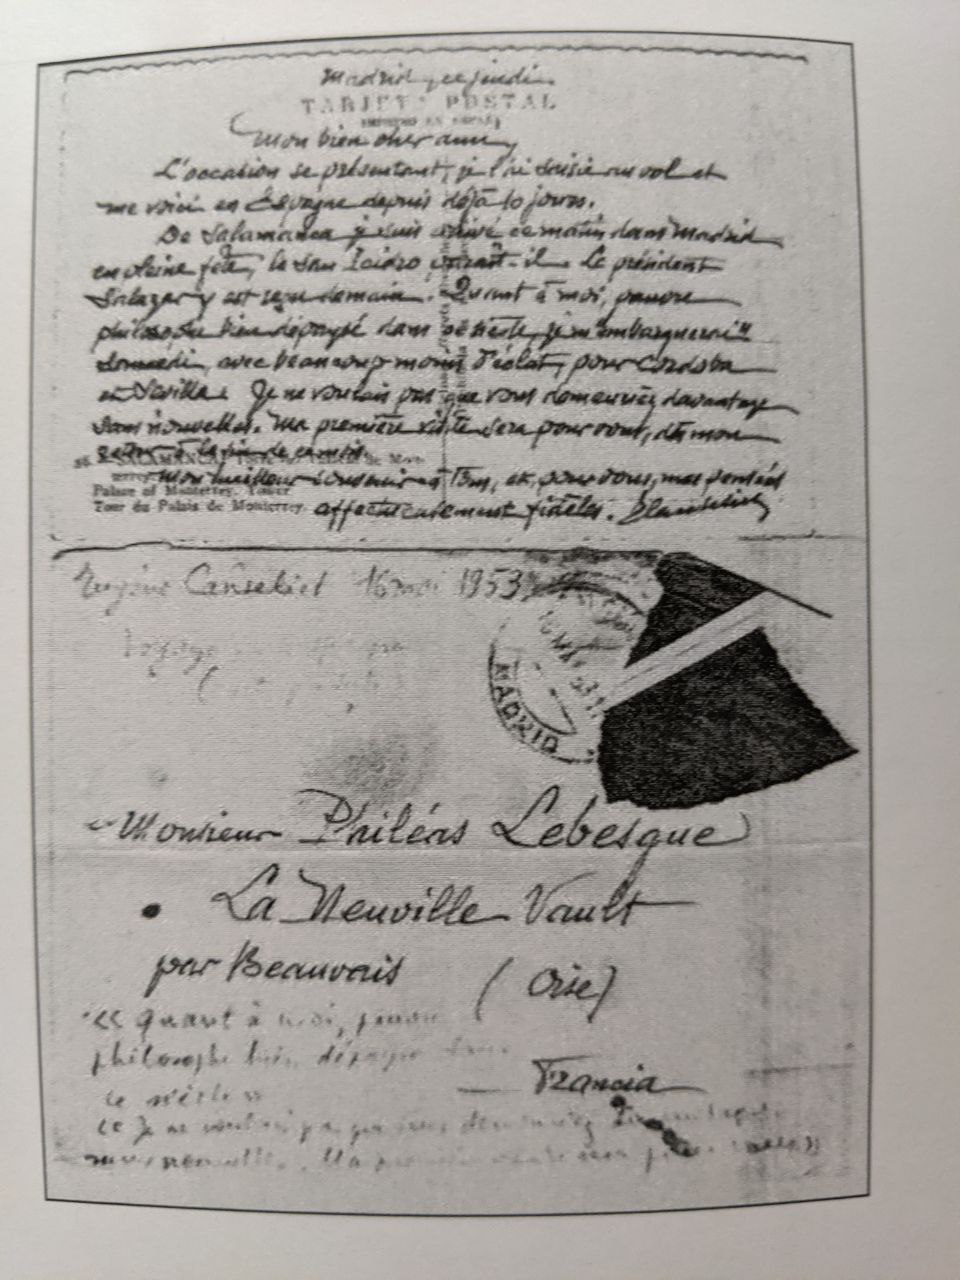 Madrid, ce jeudi.
TARJETA POSTAL
Mon bien cher ami,
L'occasion se présentant, je l'ai saisie au vol et
me voici en Espagne depuis déjà 10 jours.
De Salamanca je suis arrivé ce matin dans Madrid
en pleine fête, le san Isidro, paraît-il. Le président
Salazar y est reçu demain. Quant à moi, pauvre
philosophe bien dépaysé dans ce siècle, je m'embarquerai
samedi, avec beaucoup moins d'éclat, pour Cordoba
et Sevilla. Je ne voulais pas que vous demeuriez davantage
sans nouvelles. Ma première visite sera pour vous, dès mon
retour à la fin de ce mois.
SALAMANCA de Mon-
terrey
Palace of Monterrey. Tower
Tour du Palais de Monterrey.
Mon meilleur souvenir à Tous, et, pour vous, mes pensées
affectueusement fidèles.
Eugène Canseliet 16 mai 1953
Voyage
MADRID
Monsieur Philéas Lebesgue
La Neuville Vault
par Beauvais (Oise)
Francia
« Quant à moi, pauvre
philosophe bien dépaysé dans
ce siècle »
« Je ne voulais pas que vous demeuriez davantage
sans nouvelles. Ma première visite sera pour vous »